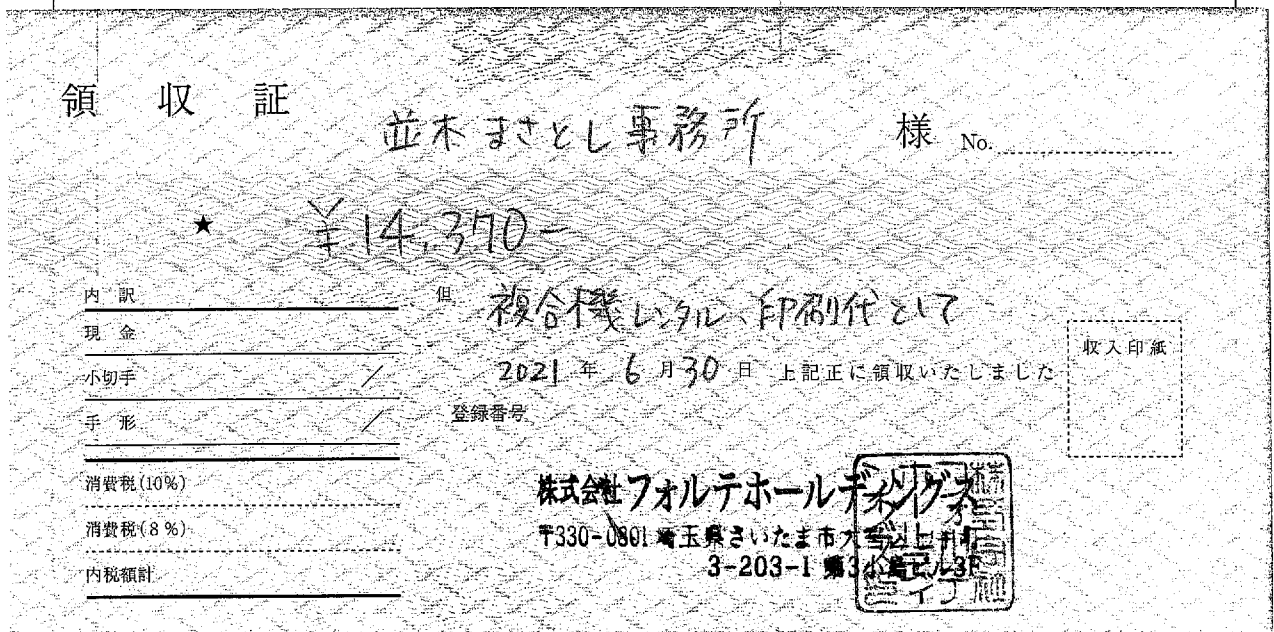 領収証
並木まさとし事務所 様 No.
★ ¥14,370-
内訳
現金
小切手 /
手形 /
消費税(10%)
消費税(8%)
内税額計
但 複合機レンタル、印刷代として
2021年6月30日 上記正に領収いたしました
登録番号
収入印紙
株式会社フォルテホールディングス
〒330-0801 埼玉県さいたま市大宮区土手町
3-203-1 第3小島ビル3F